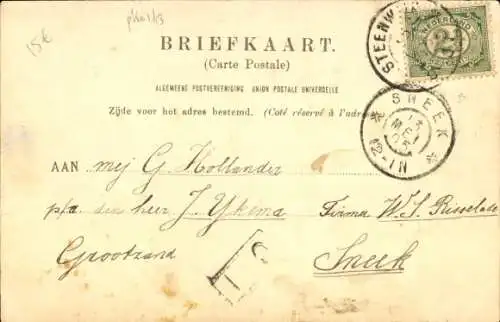 15€
BRIEFKAART.
(Carte Postale)
ALGEMEENE POSTVEREENIGING UNION POSTALE UNIVERSELLE
Zijde voor het adres bestemd. (Coté réservé à l'adres
STEENW
NEDERLAND
2½
SNEEK
12-1N
AAN mej G. Hollander
p/a den heer J. Ykema Firma W. S.
Grootzand Sneek